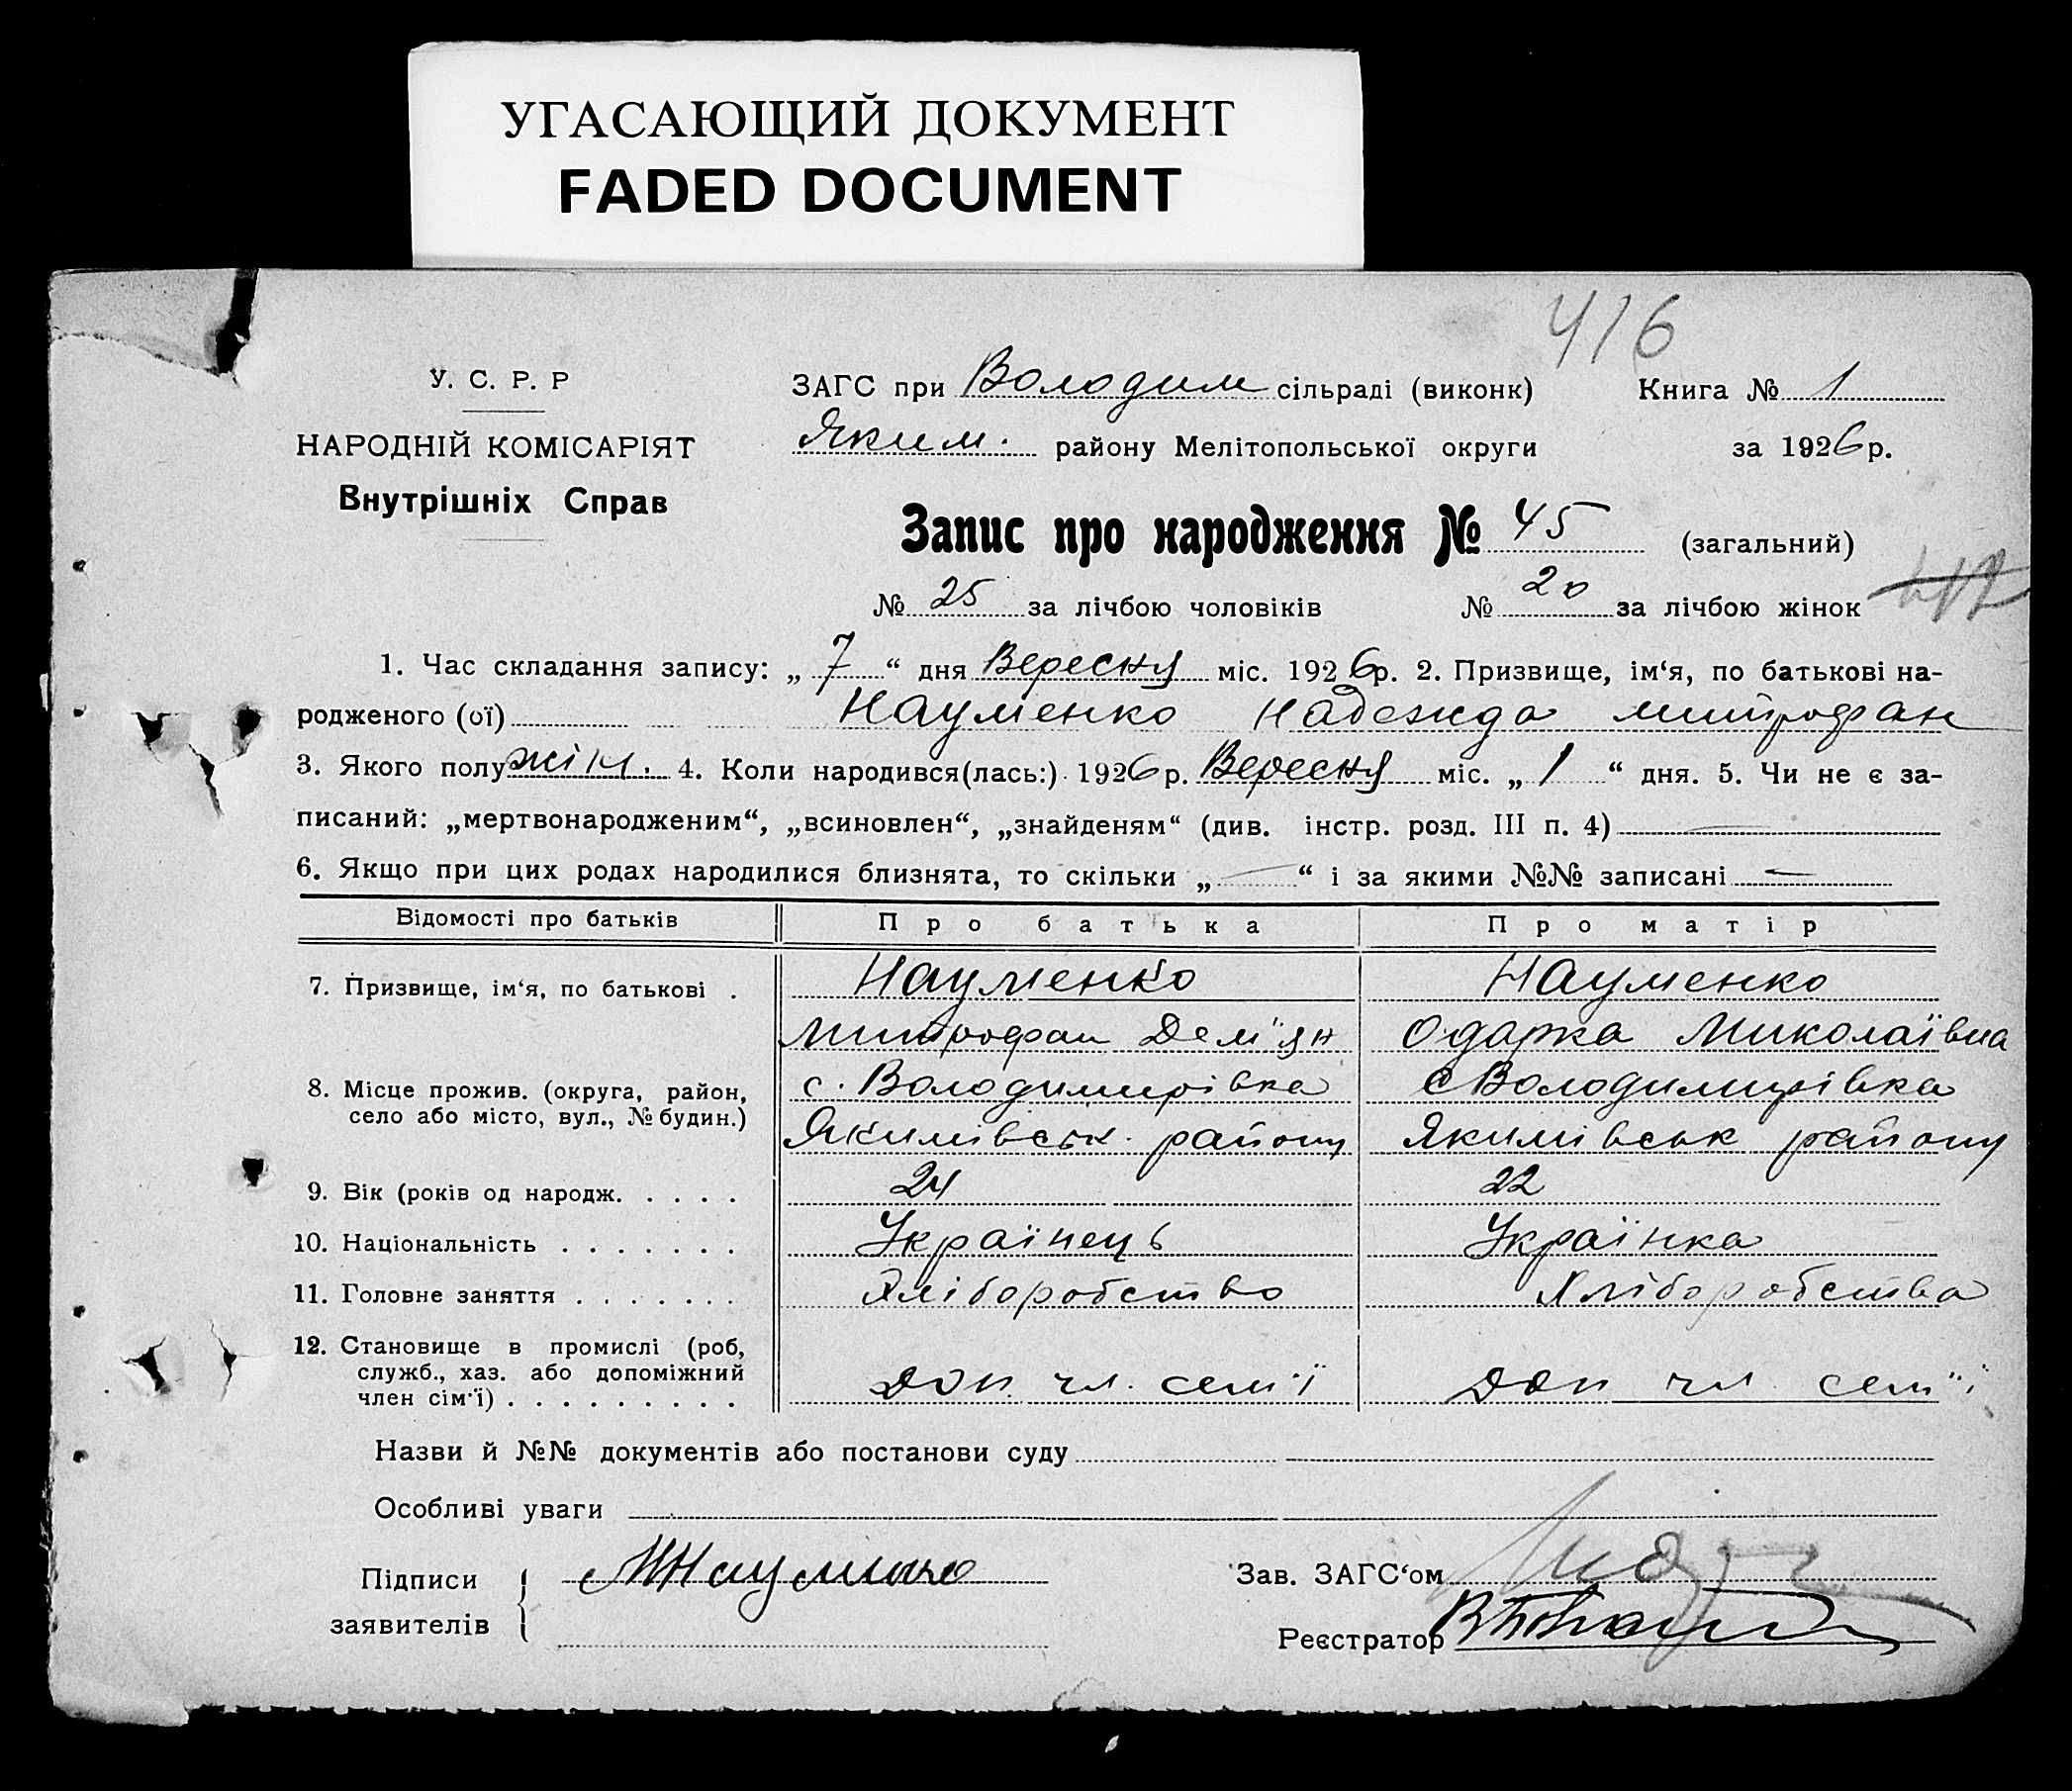 УГАСАЮЩИЙ ДОКУМЕНТ
FADED DOCUMENT
416
У. С. Р. Р
НАРОДНІЙ КОМІСАРІЯТ
Внутрішніх Справ
ЗАГС при Володим сільраді (виконк) Книга № 1
Яким. району Мелітопольської округи за 1926 р.
Запис про народження № 45 (загальний)
№ 25 за лічбою чоловіків № 20 за лічбою жінок
1. Час складання запису: „ 7 “ дня Вересня міс. 1926р. 2. Призвище, ім‘я, по батькові на-
родженого (ої) Науменко Надежда митрофан
3. Якого полу жін. 4. Коли народився(лась:) 1926 р. Вересня міс. „ 1 “ дня. 5. Чи не є за-
писаний: „мертвонародженим“, „всиновлен“, „знайденям“ (див. інстр. розд. III п. 4) —
6. Якщо при цих родах народилися близнята, то скільки „ — “ і за якими №№ записані —
Відомості про батьків Про батька Про матір
7. Призвище, ім‘я, по батькові . Науменко Науменко
митрофан Дем"ян Одарка Миколаївна
8. Місце прожив. (округа, район, село або місто, вул., № будин.) с. Володимирівка с Володимирівка
Якимівськ. району Якимівськ району
9. Вік (років од народж. . . . . 24 22
10. Національність . . . . . . . Українець Українка
11. Головне заняття . . . . . . . Хліборобство Хліборобства
12. Становище в промислі (роб, служб., хаз. або допоміжний
член сім‘ї) . . . . . . . . . Доп. чл. сем'ї Доп чл сем"ї
Назви й №№ документів або постанови суду
Особливі уваги
Підписи заявителів МНауменко
Зав. ЗАГС‘ом
Реєстратор